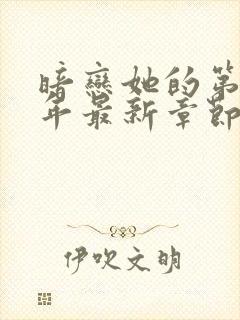 暗戀她的第
年最新章節
伊吹文明